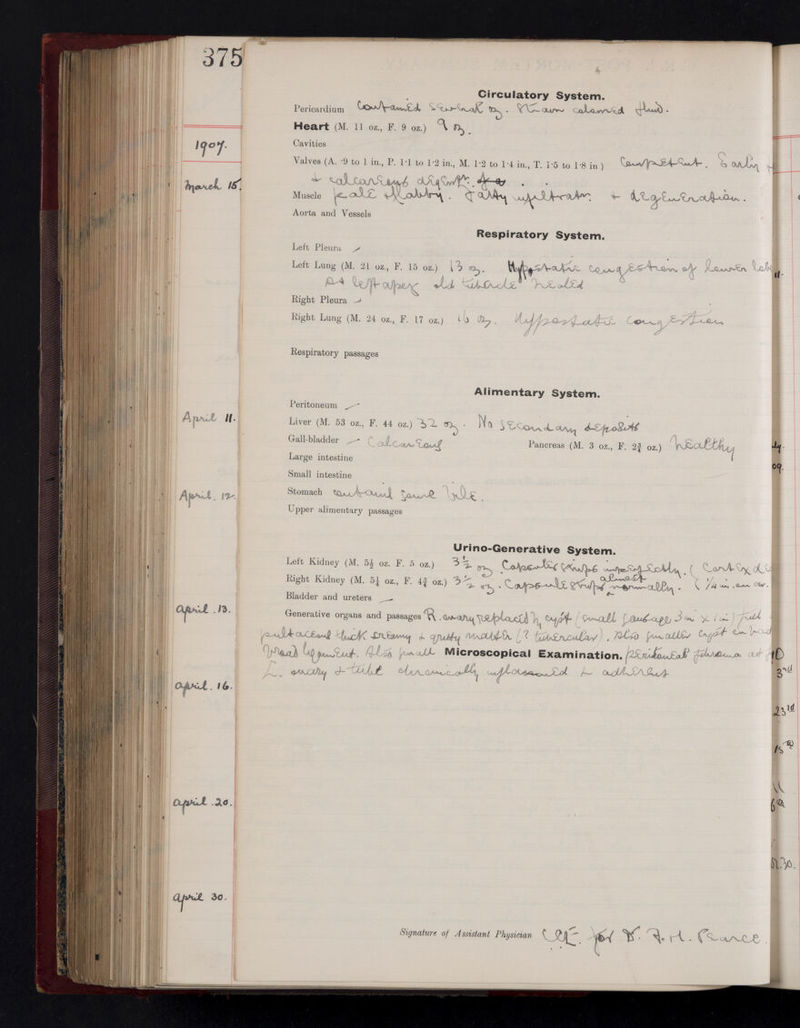 375
Circulatory System.
Pericardium Contained several oz. Straw coloured fluid.
Heart (M. 11 oz., F. 9 oz.) 9 oz.
1907.
Cavities
Valves (A. ·9 to 1 in., P. 1·1 to 1·2 in., M. 1·2 to 1·4 in., T. 1·5 to 1·8 in) Competent. Early
March 15.
& calcareous
Muscle pale & flabby. Fatty infiltratn. & degeneration.
Aorta and Vessels
Respiratory System.
Left Pleura
Left Lung (M. 21 oz., F. 15 oz.) 13 oz. Hypostatic congestion of lower lobe
At left apex old tubercle healed
Right Pleura
Right Lung (M. 24 oz., F. 17 oz.) 16 oz. Hypostatic congestion
Respiratory passages
Alimentary System.
Peritoneum
April 11.
Liver (M. 53 oz., F. 44 oz.) 32 oz. No secondary deposits
Gall-bladder Calcareous Pancreas (M. 3 oz., F. 2¾ oz.) healthy
Large intestine
Small intestine
April. 12.
Stomach contained some bile.
Upper alimentary passages
Urino-Generative System.
Left Kidney (M. 5½ oz. F. 5 oz.) 3½ oz Capsules strips imperfectly. (Cortex
Right Kidney (M. 5¼ oz., F. 4¾ oz.) 3½ oz. Capsule strips almost normally. ( 1/4 in.
Bladder and ureters
April .13.
Generative organs and passages R. ovary replaced by cyst (small sausage 3 in x 1 in) full
pultaceous thick creamy & gritty matter (? tubercular). Also smaller cyst in
broad ligament. Also small Microscopical Examination. peritoneal fibroma at
L. ovary & tube chronically inflamed & adherent
3rd
April. 16.
23rd
15th
April .20.
6th
April 30.
Signature of Assistant Physician for Dr. F. H. Pearce.